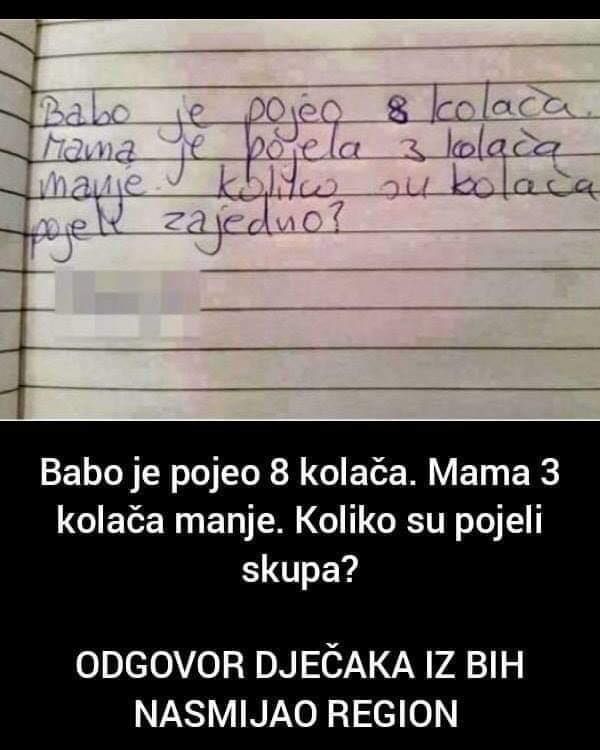 Babo je pojeo 8 kolača.
Mama je pojela 3 kolača
manje. Koliko su kolača
pojeli zajedno?
Babo je pojeo 8 kolača. Mama 3
kolača manje. Koliko su pojeli
skupa?
ODGOVOR DJEČAKA IZ BIH
NASMIJAO REGION